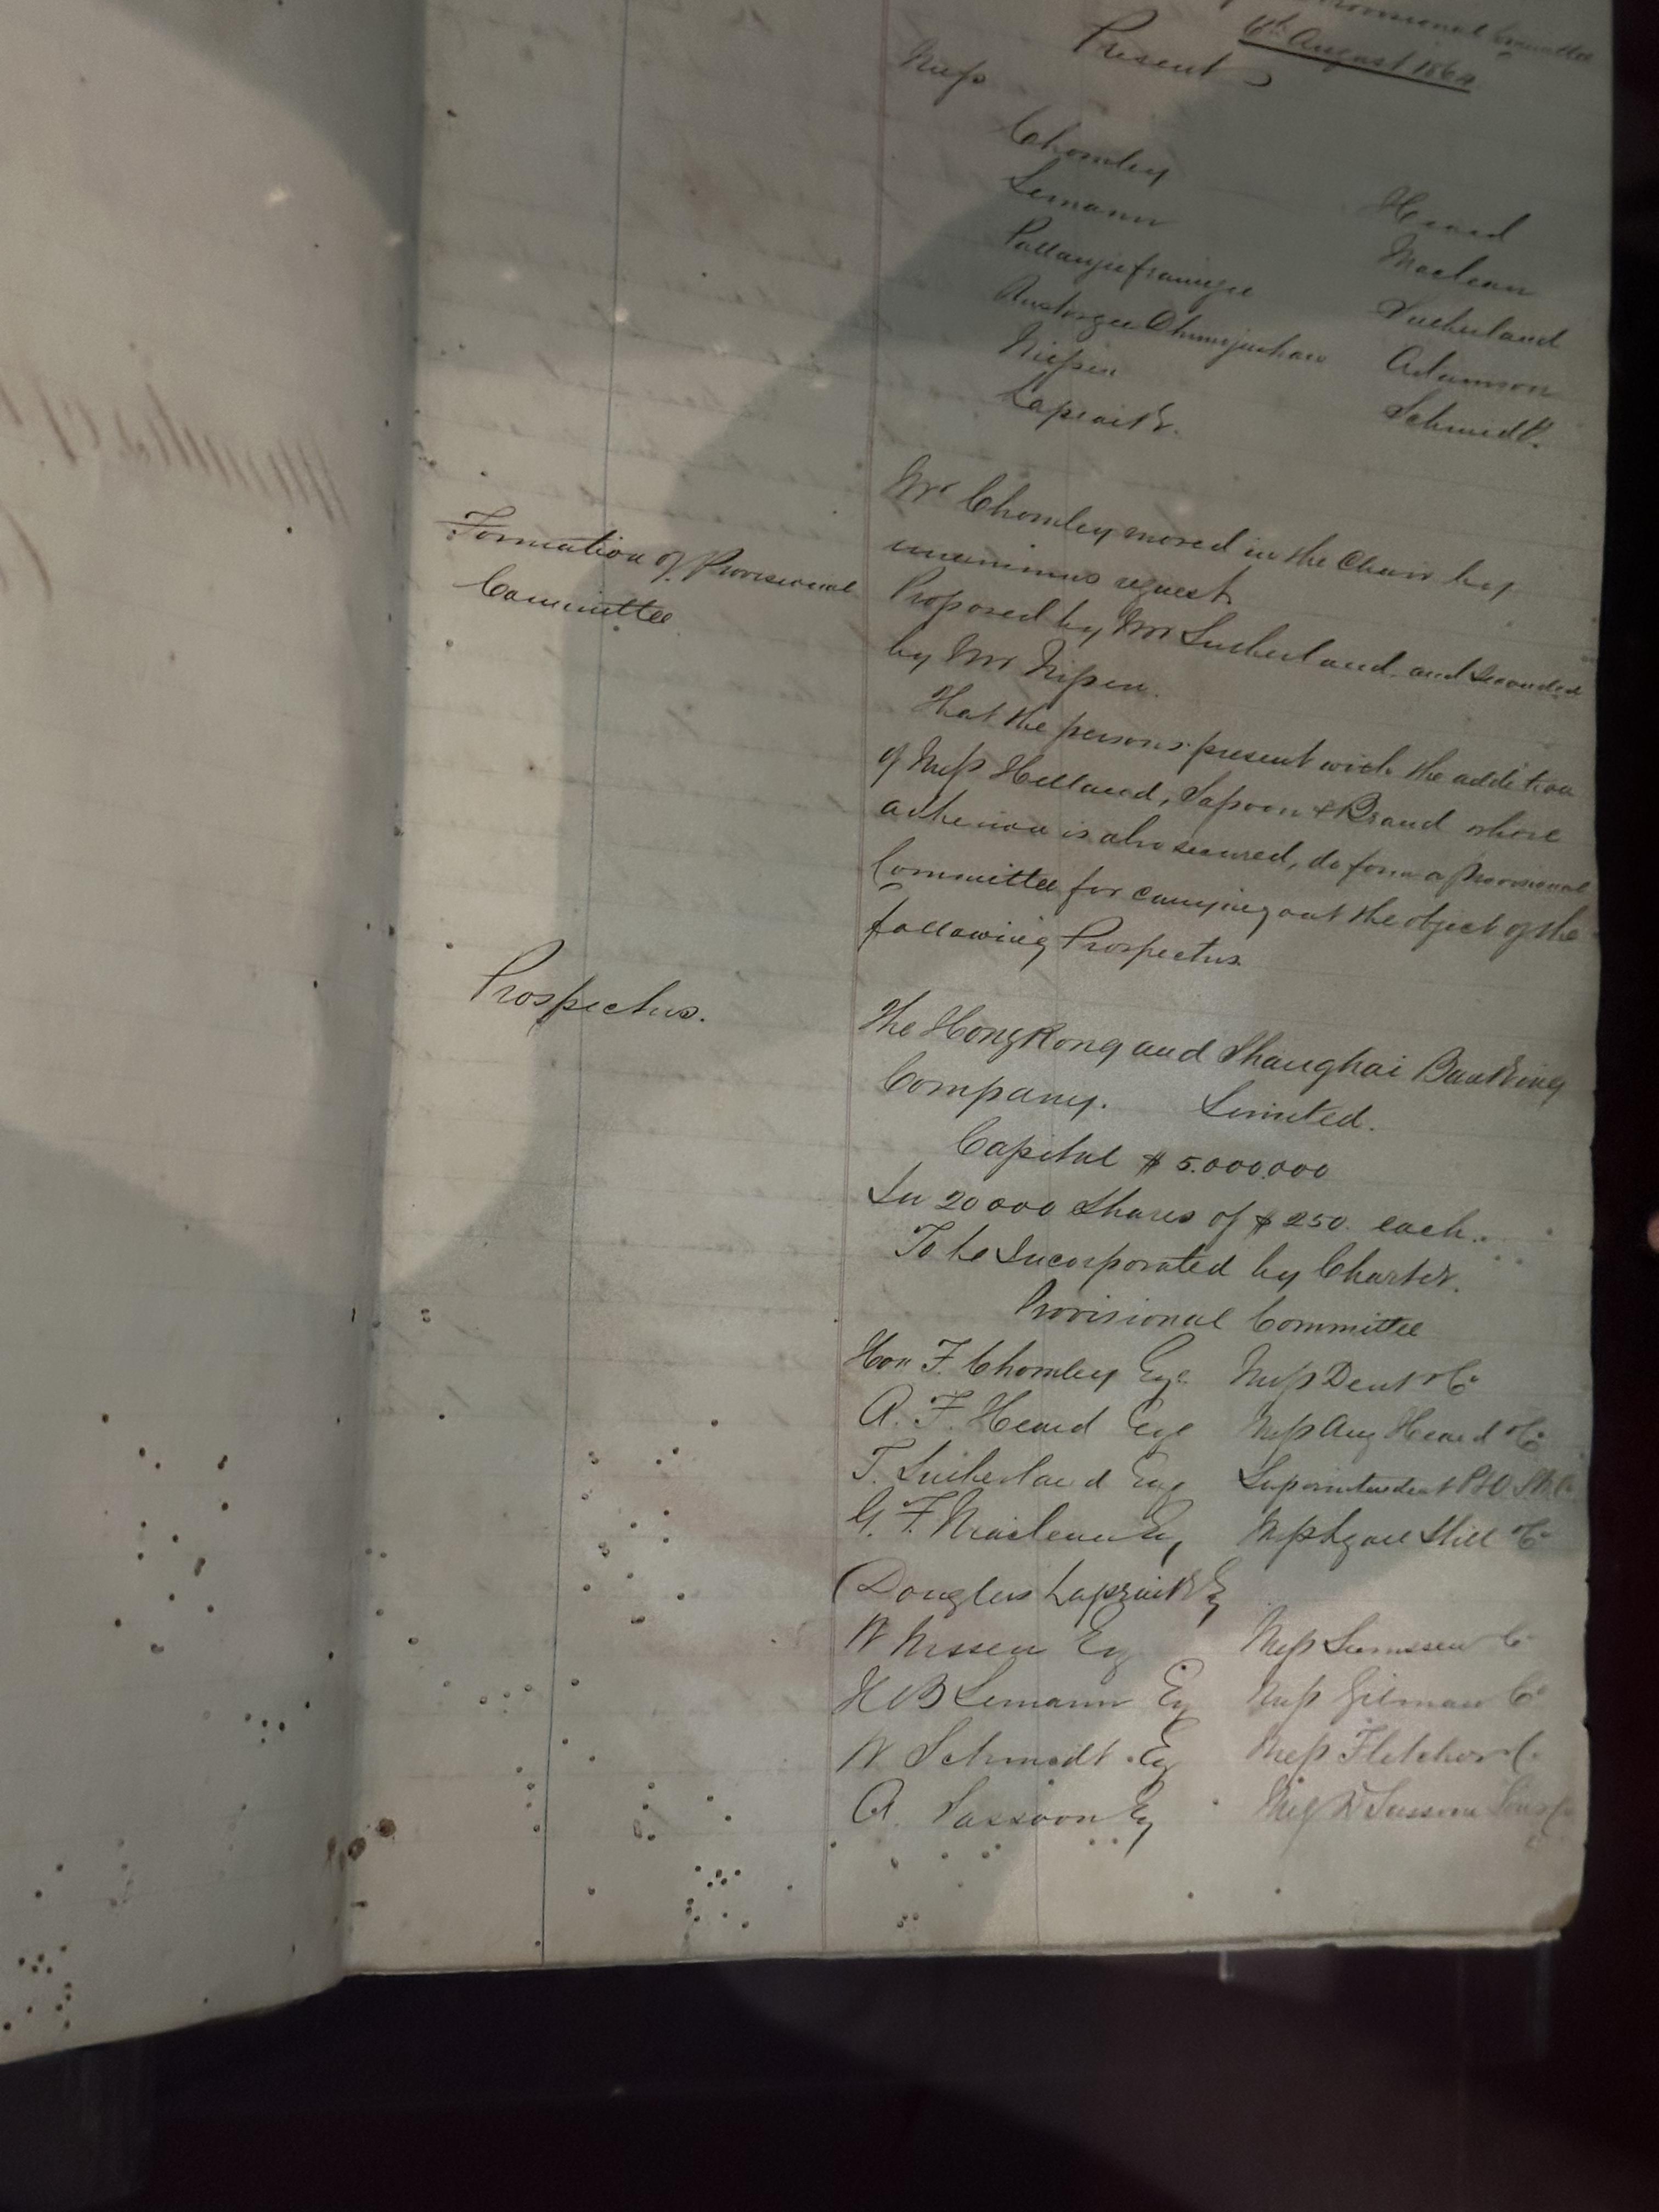 Provisional Committee
6th August 1864
Present
Messrs
Chomley
Lemann Heard
Pallanjee framjee Maclean
Rustomjee Dhunjeeshaw Sutherland
Nissen Adamson
Lapraik. Schmidt.
Formation of Provisional
Committee
Mr Chomley moved in the Chair by
unanimus request.
Proposed by Mr Sutherland and seconded
by Mr Nissen.
That the persons present with the addition
of Messrs Helland, Sassoon & Brand whose
adhesion is also secured, do form a Provisional
Committee for carrying out the object of the
following Prospectus.
Prospectus.
The HongKong and Shanghai Banking
Company. Limited.
Capital $ 5.000.000
In 20000 Shares of $ 250. each.
To be Incorporated by Charter.
Provisional Committee
Hon F. Chomley Esqe Messrs Dent & Co
A. F. Heard Esqe Messrs Aug Heard & Co
T. Sutherland Esq Superintendent P&O S.N.Co
G. F. Maclean Esq Messrs Lyall Still & Co
Douglas Lapraik Esq
W Nissen Esq Messrs Siemssen & Co
H B Lemann Esq Messrs Gilman & Co
W Schmidt Esq Messrs Fletcher & Co
A. Sassoon Esq Messrs D Sassoon Sons & Co